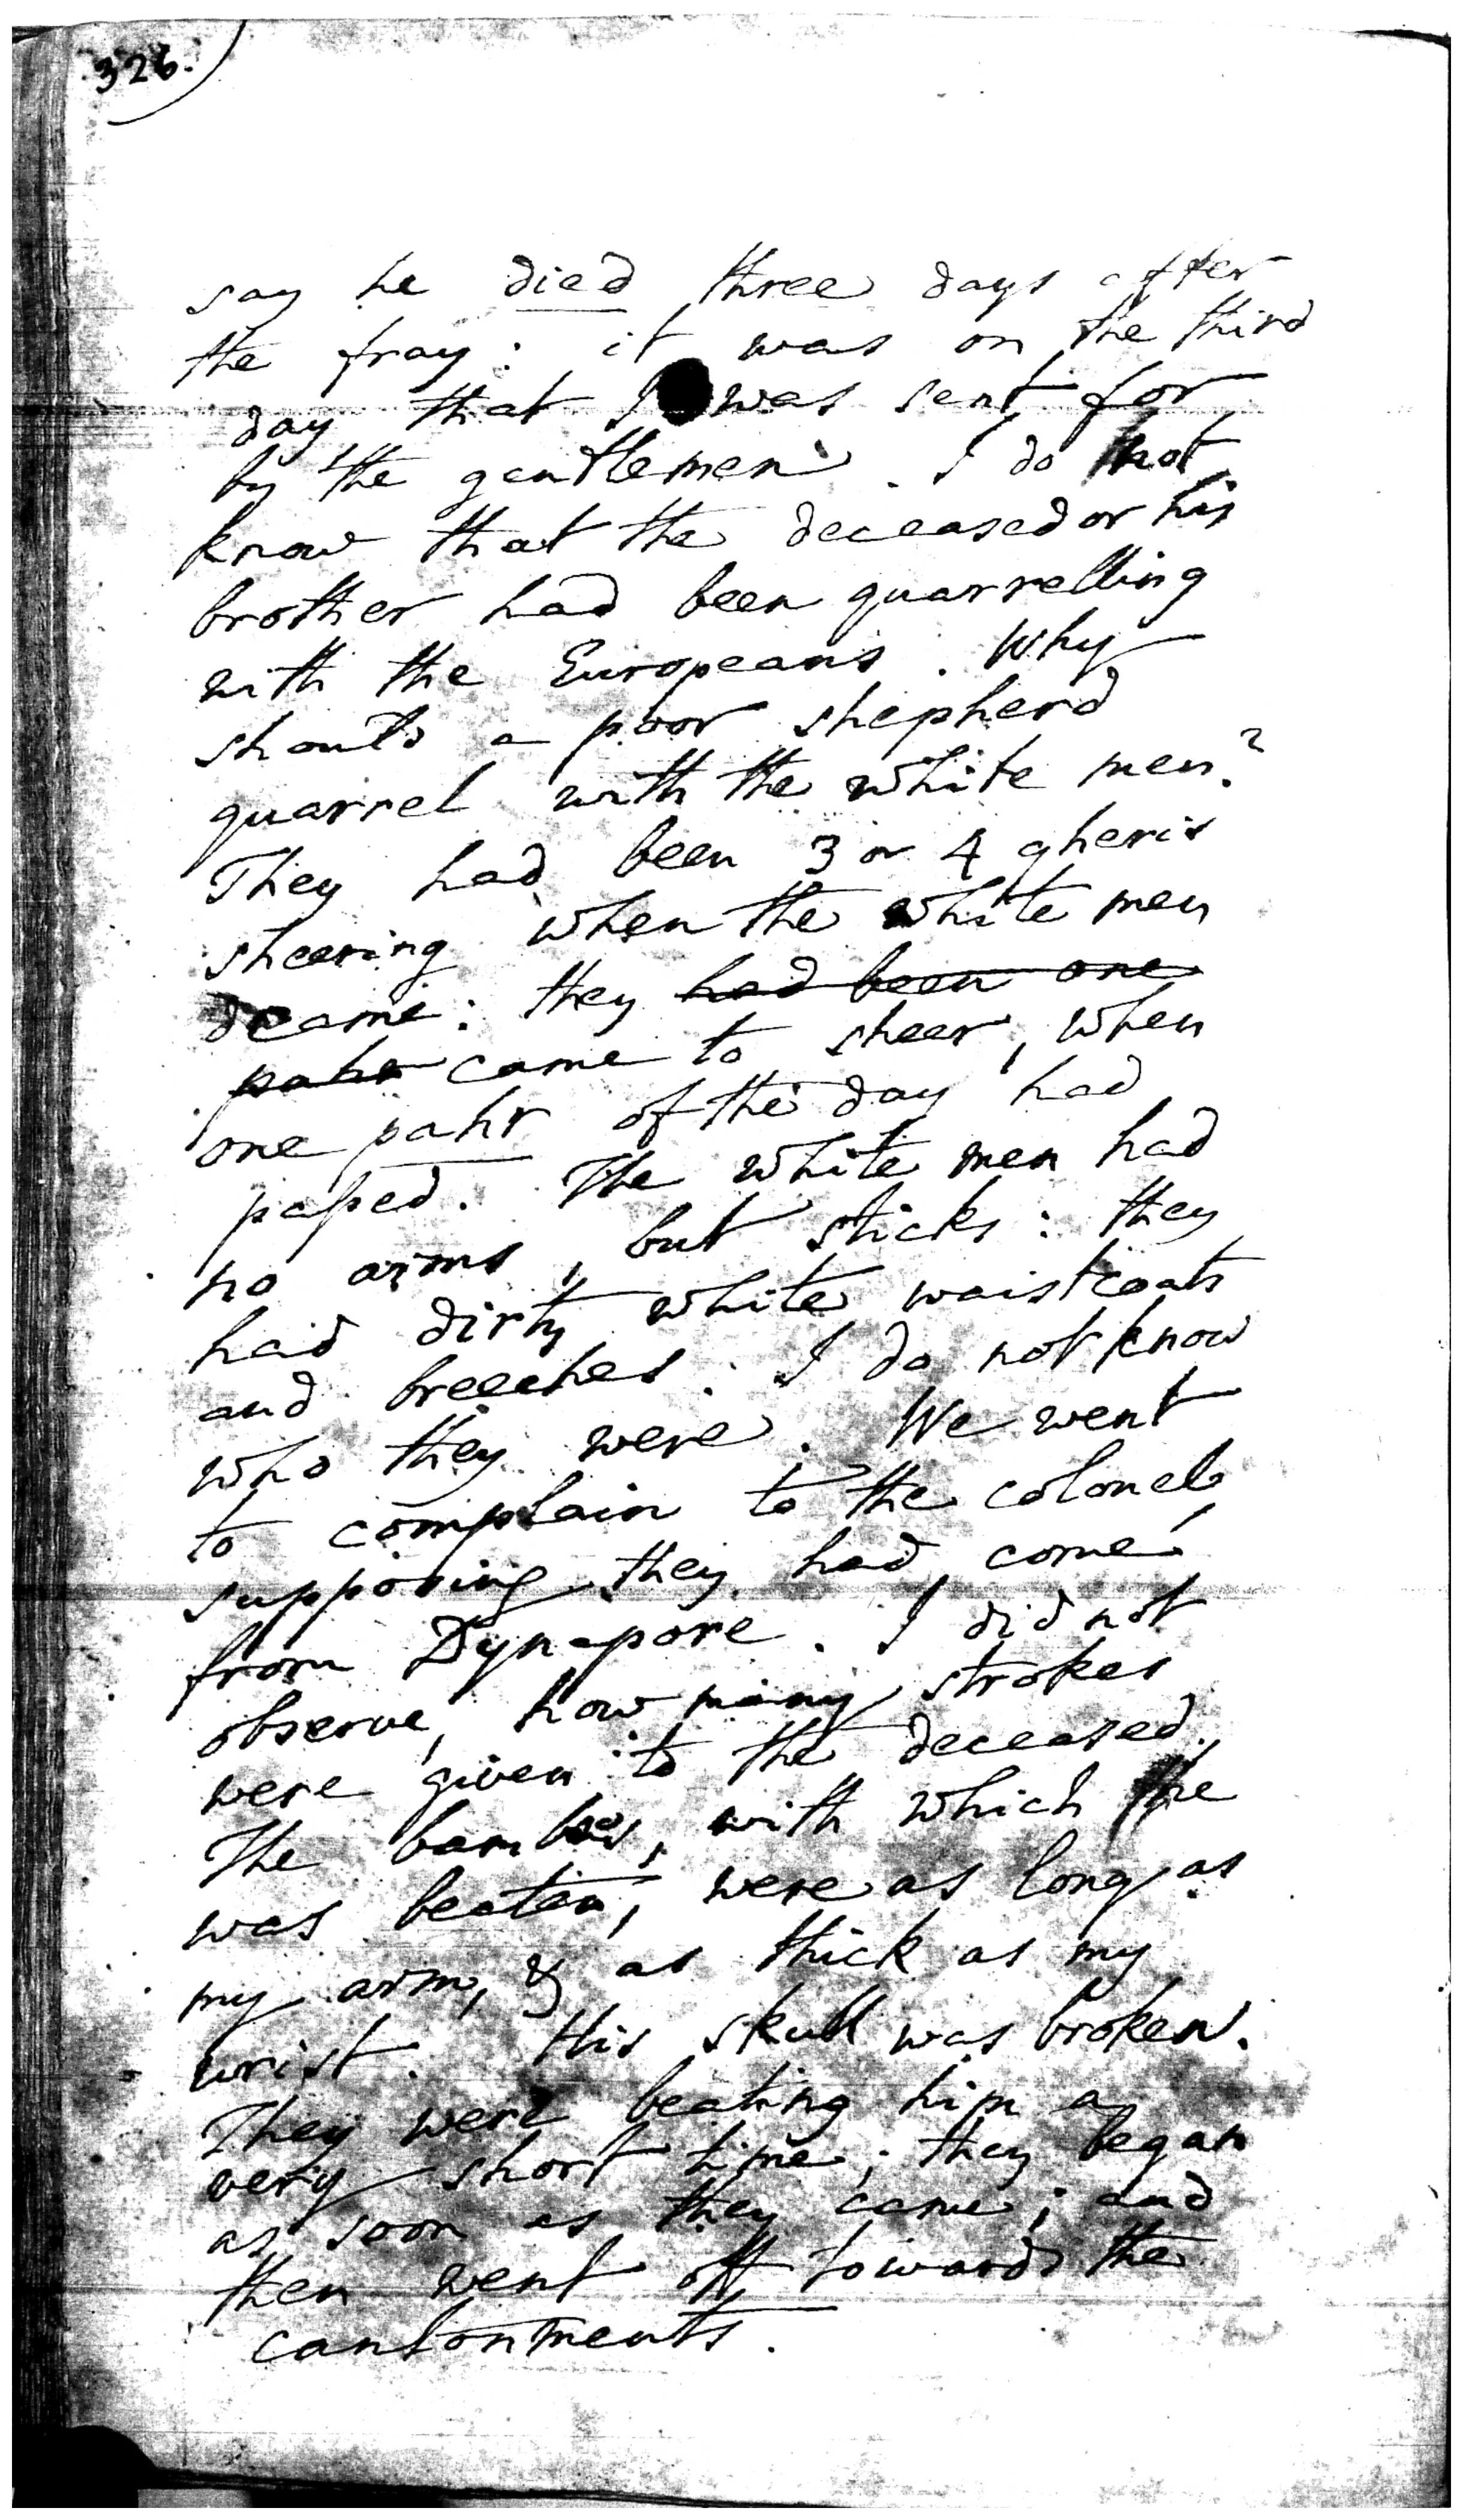 326.
say he died three days after
the fray: it was on the third
day that I was sent for
by the gentlemen. I do not
know that the deceased or his
brother had been quarrelling
with the Europeans. Why
should a poor shepherd
quarrel with the white men?
They had been 3 or 4 gheris
sheering when the white men
came: they had been one
pahr came to sheer, when
one pahr of the day had
paſsed. The white men had
no arms, but sticks: they
had dirty white waistcoats
and breeches: I do not know
who they were. We went
to complain to the colonel,
supposing they had come
from Dynapore. I did not
observe, how many strokes
were given to the deceased.
The bambus, with which he
was beaten, were as long as
my arm, & as thick as my
wrist. His skull was broken.
They were beating him a
very short time; they began
as soon as they came; and
then went off towards the
cantonments.